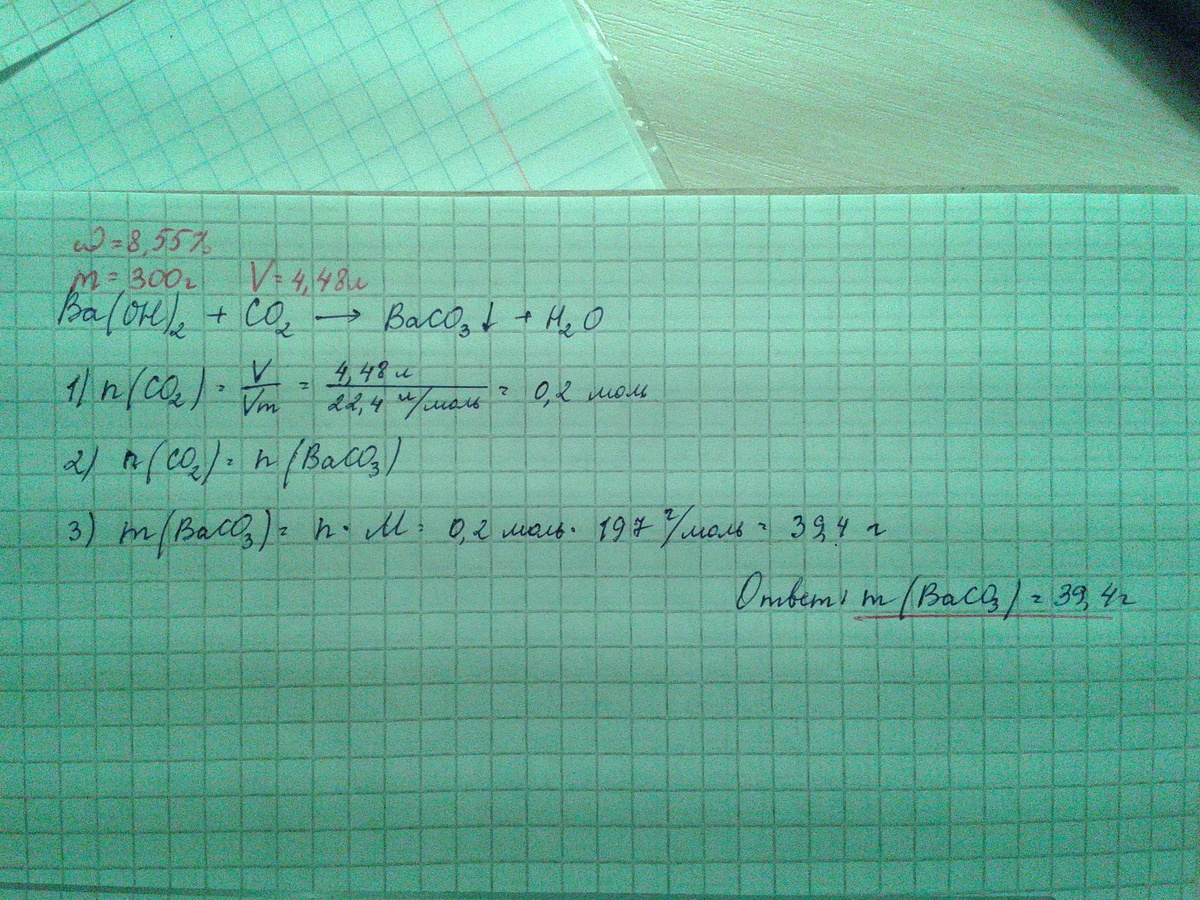 ω = 8,55%
m = 300г V = 4,48л
Ba(OH)₂ + CO₂ → BaCO₃↓ + H₂O
1) n(CO₂) = V/Vm = 4,48 л/22,4 л/моль = 0,2 моль
2) n(CO₂) = n(BaCO₃)
3) m(BaCO₃) = n · M = 0,2 моль · 197 г/моль = 39,4 г
Ответ: m(BaCO₃) = 39,4г